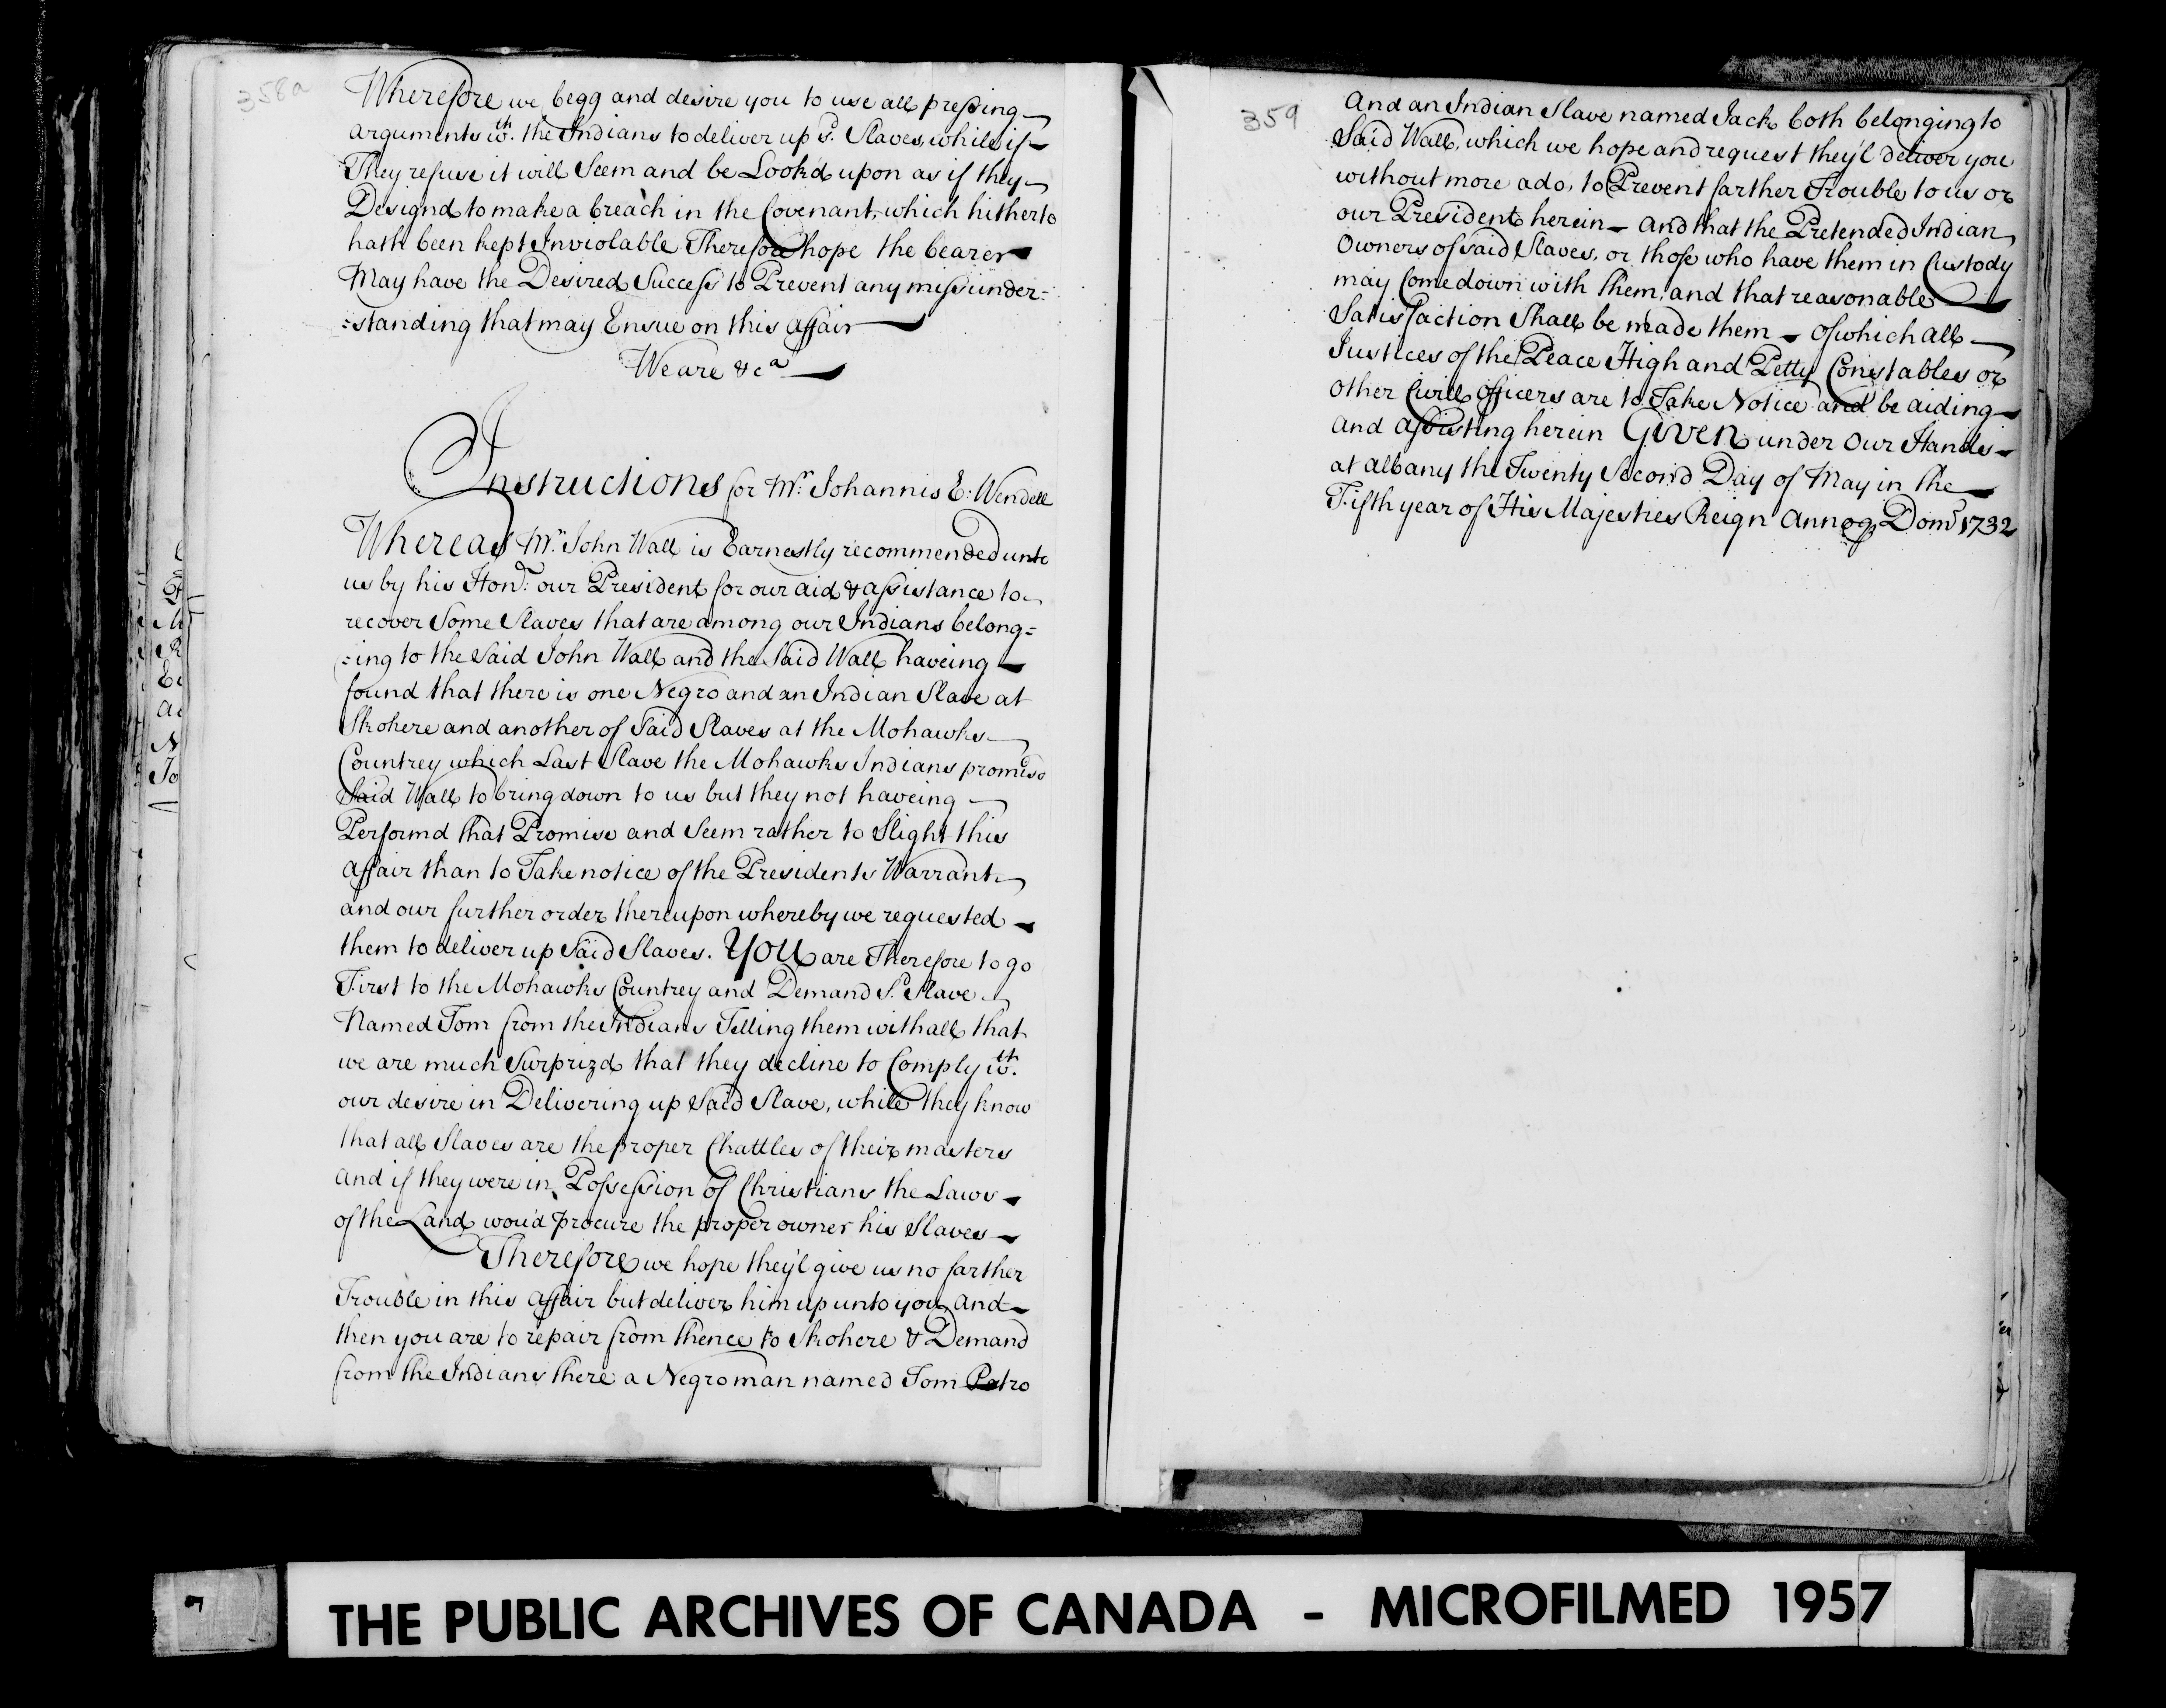 358a
Wherefore we begg and desire you to use all pressing
arguments wth. the Indians to deliver up sd. Slaves, while if
They refuse it will Seem and be Look'd upon as if they
Designd to make a breach in the Covenant, which hitherto
hath been kept Inviolable Therefore hope the bearer
May have the Desired Success to Prevent any missunder=
=standing that may Ensue on this affair
We are &ca
Instructions for Mr. Johannis E: Wendell
Whereas Mr. John Wall is Earnestly recommended unto
us by his Honr: our President for our aid & assistance to
recover Some Slaves that are among our Indians belong=
=ing to the Said John Wall and the Said Wall haveing
found that there is one Negro and an Indian Slave at
Skohere and another of Said Slaves at the Mohawks
Countrey which Last Slave the Mohawks Indians promisd
Said Wall to bring down to us but they not haveing
Performd that Promise and Seem rather to Slight this
affair than to Take notice of the Presidents Warrant
and our further order thereupon whereby we requested
them to deliver up Said Slaves. You are Therefore to go
First to the Mohawks Countrey and Demand Sd. Slave
Named Tom from the Indians Telling them withall that
we are much Surprizd that they decline to Comply wth.
our desire in Delivering up Said Slave, while they know
that all Slaves are the proper Chattles of their masters
and if they were in Possession of Christians the Laws
of the Land wou'd procure the proper owner his Slaves
Therefore we hope they'l give us no farther
Trouble in this affair but deliver him up unto you, and
then you are to repair from thence to Skohere & Demand
from the Indians there a Negro man named Tom Patro
359
And an Indian Slave named Jack both belonging to
Said Wall, which we hope and request they'l deliver you
without more ado, to Prevent farther Trouble to us or
our President herein - and that the Pretended Indian
Owners of said Slaves, or those who have them in Custody
may Come down with them, and that reasonable
Satisfaction Shall be made them - of which all
Justices of the Peace High and Petty Constables or
other Civill officers are to Take Notice and be aiding
and assisting herein Given under Our Hands
at albany the Twenty Second Day of May in the
Fifth year of His Majesties Reign Annoq Domi 1732
THE PUBLIC ARCHIVES OF CANADA - MICROFILMED 1957